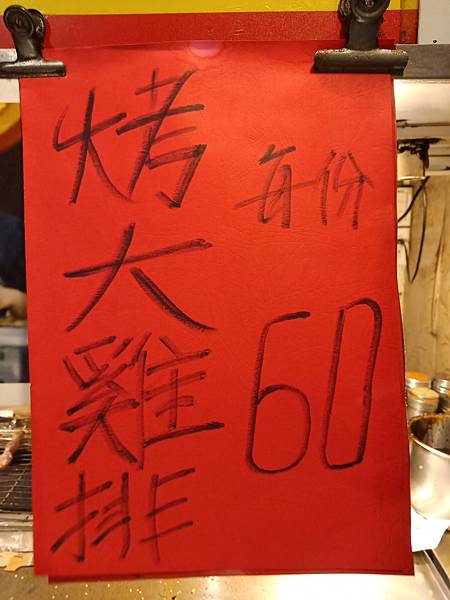 烤大雞排
每份
60